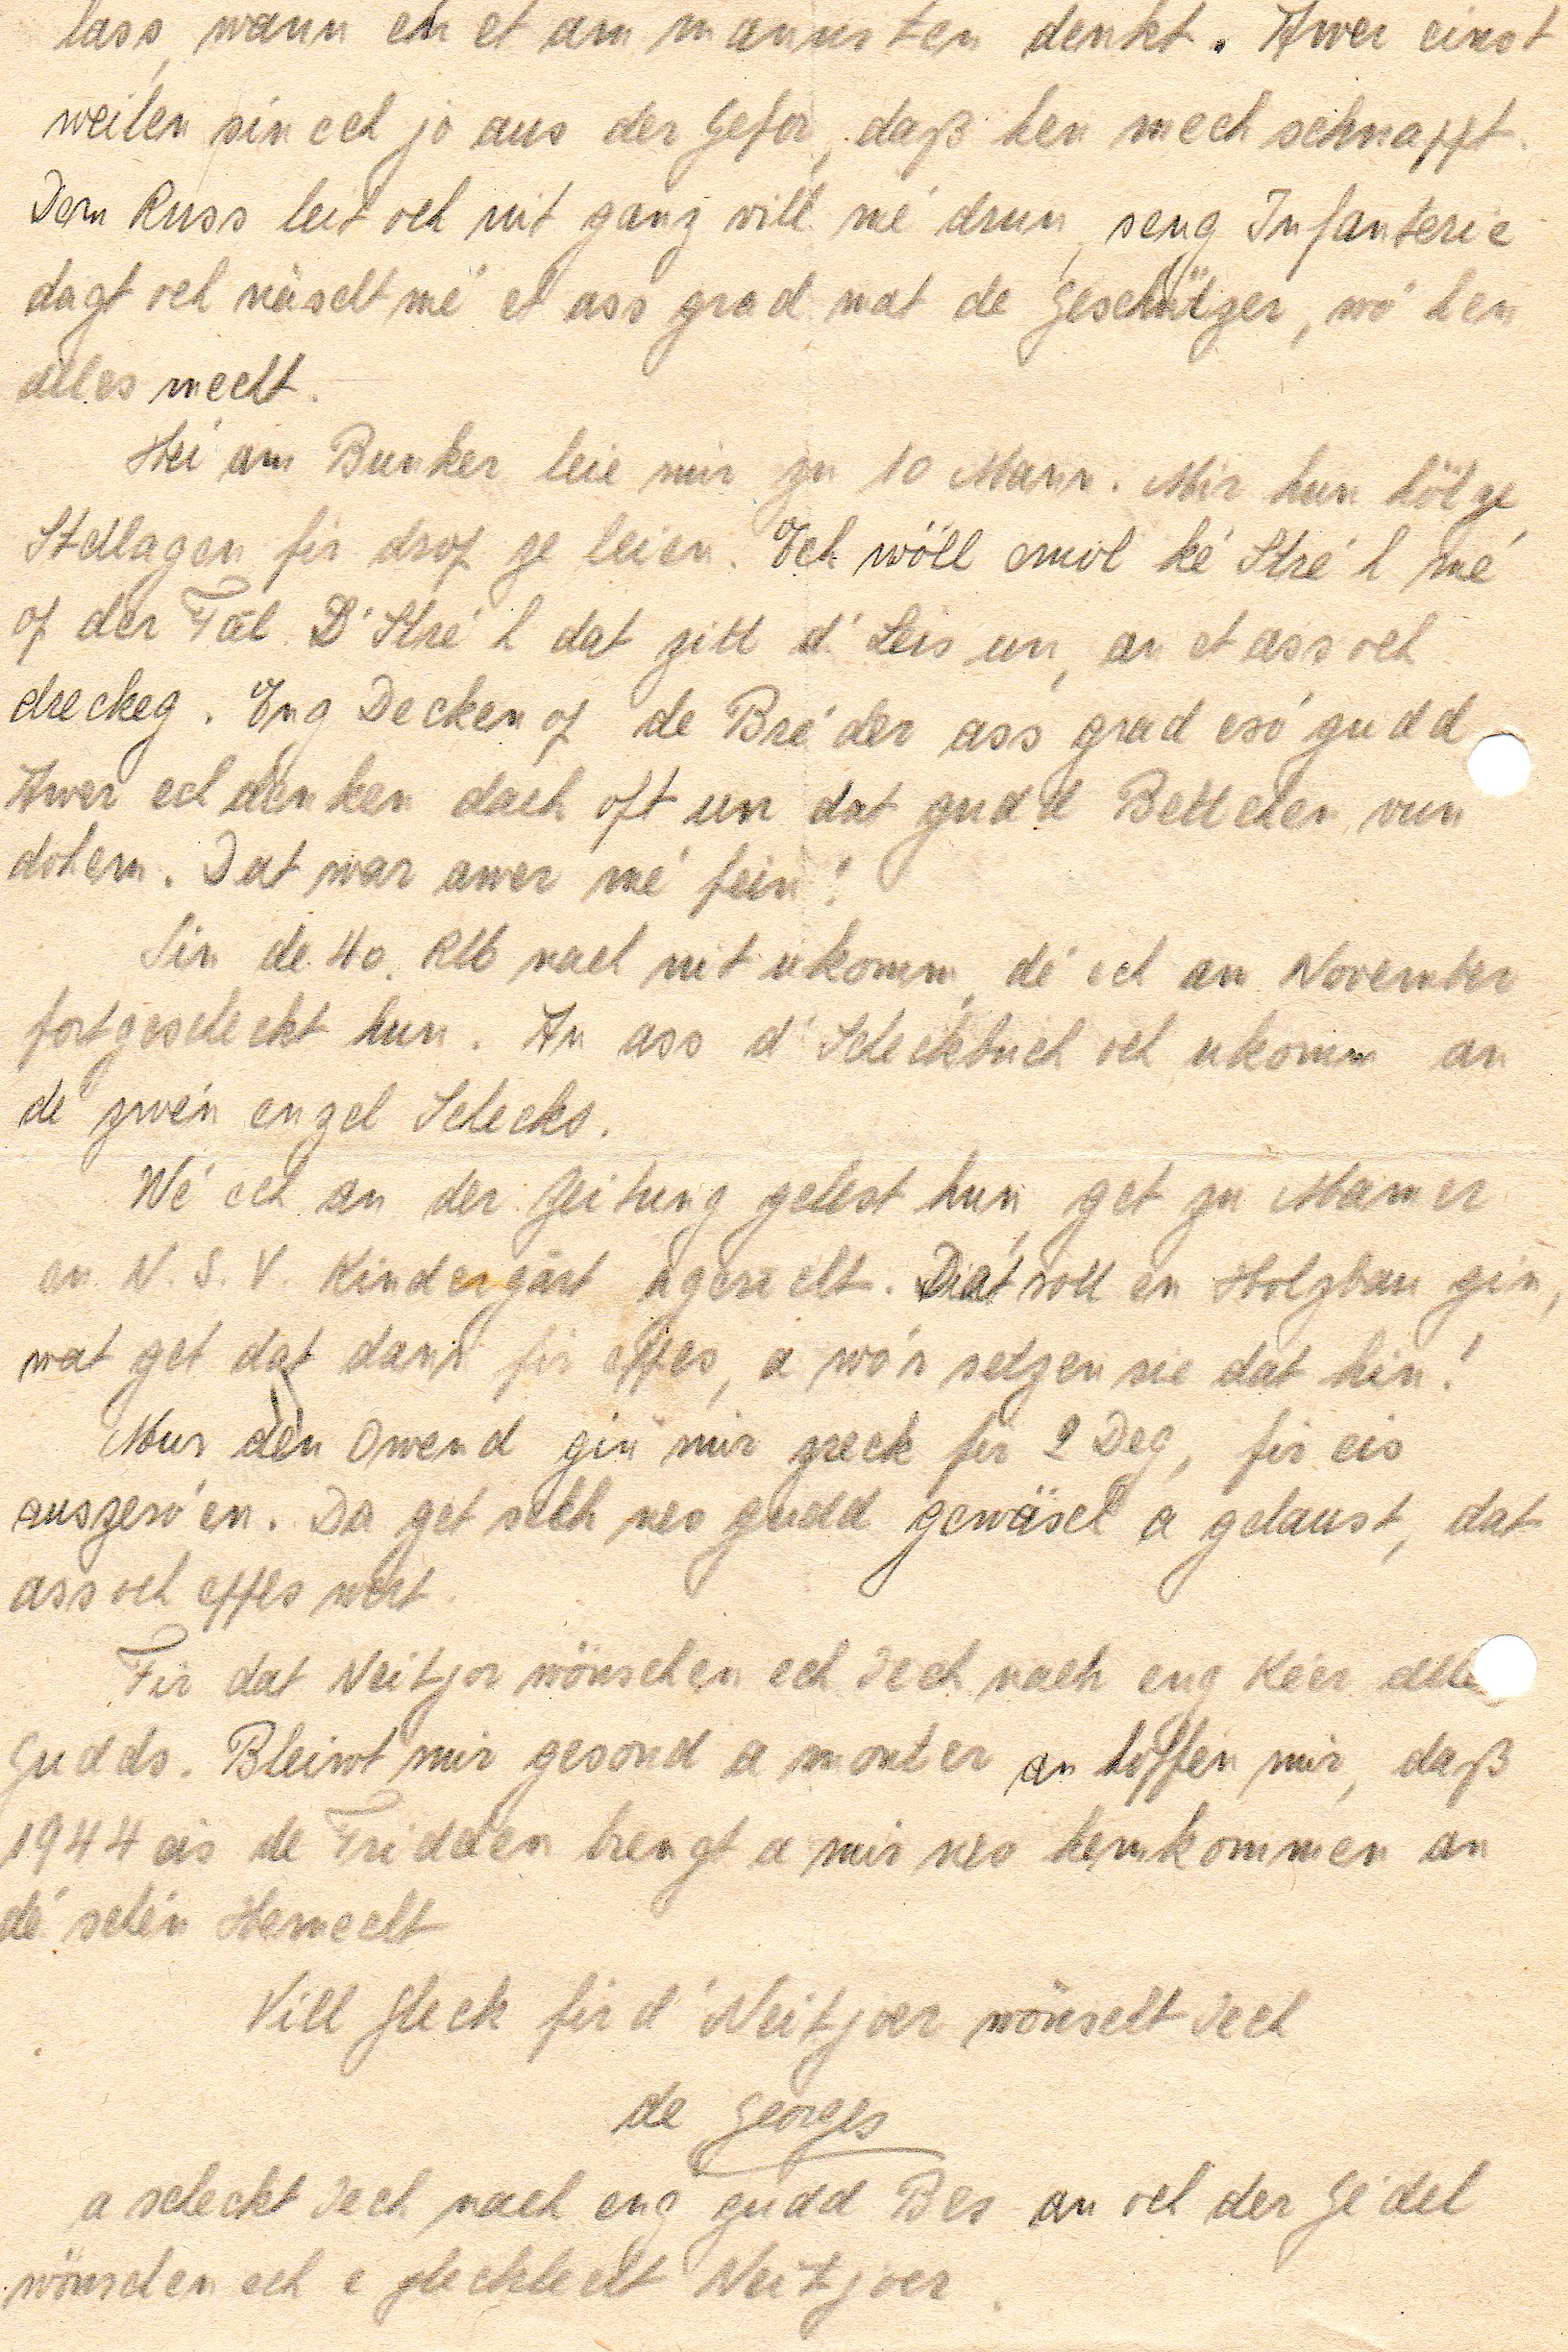 lass, wann en et am mannsten denkt. Awer einst
weilen sin ech jo aus der Gefor, daß hen mech schnappt.
Dem Russ leit och nit ganz vill mé drun, seng Infanterie
dagt och näischt mé et ass grad mat de Geschützer, wó hen
alles mecht.
Hei am Bunker leie mir zu 10 Mann. Mir hun hölze
Stellagen fir drop ze leien. Ech wöll emol ké Stré h mé
op der Fäl. D'Stré h dat zitt d'Leis un, an et ass och
dreckeg. Eng Decken op de Bréder ass grad esó gudd
Awer ech denken dach oft un dat gudd Bettchen vun
dohem. Dat war awer mé fein!
Sin de 40. RM nach nit ukomm, dé ech am November
fortgescheckt hun. An ass d'Scheckbuch och ukomm an
de zwén enzel Schecks.
Wé ech an der Zeitung gelest hun, get zu Mamer
en N.S.V. Kindergärt ageriecht. Dat soll en Holzbau gin,
wat get dat dann fir eppes, a wó'r setzen sie dat hin!
Mur den Owend gin mir zreck fir 2 Deg, fir eis
auszero'en. Da get sech nes gudd gewäsch a gelaust, dat
ass och eppes wert.
Fir dat Neitjor wönschen ech Iech nach eng Keier alle
Gudds. Bleiwt mir gesond a monter an hoffen mir, daß
1944 eis de Fridden brengt a mir nes hemkommen an
dé schén Hemecht
Vill Gleck fir d'Neitjoer wönscht Iech
de Georges
a scheckt Iech nach eng gudd Bes an och der Gédel
wönschen ech e glecklecht Neitjoer.